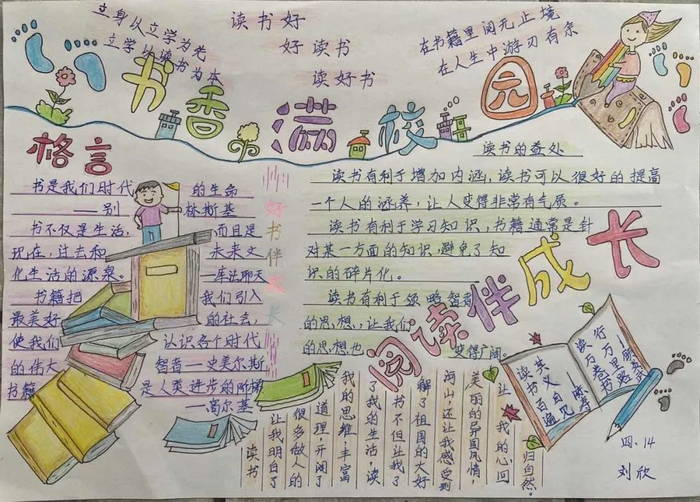 立身以立学为先
立学以读书为本
读书好
好读书
读好书
在书籍里阅无止境
在人生中游刃有余
书香满校园
格言
书是我们时代的生命
——别林斯基
书不仅是生活,而且是
现在,过去和未来文
化生活的源泉。
——库法聊天
书籍把我们引入
最美好的社会,
使我们认识各个时代
的伟大智者—史美尔斯
书籍是人类进步的阶梯
——高尔基
好书伴
长
读书的益处
读书有利于增加内涵,读书可以很好的提高
一个人的涵养,让人变得非常有气质。
读书有利于学习知识,书籍通常是针
对某一方面的知识,避免了知
识的碎片化。
读书有利于领略智者
的思想,让我们
的思想也变得广阔。
阅读伴成长
读书
让我明白了
很多做人的
道理,开阔了
我的思维,丰富
了我的生活,读
书不但让我了
解了祖国的大好
河山,还让我感受到
美丽的异国风情,
让我的心回
归自然。
读书百遍
其义自见
读万卷书
行万里路
四、14
刘欣